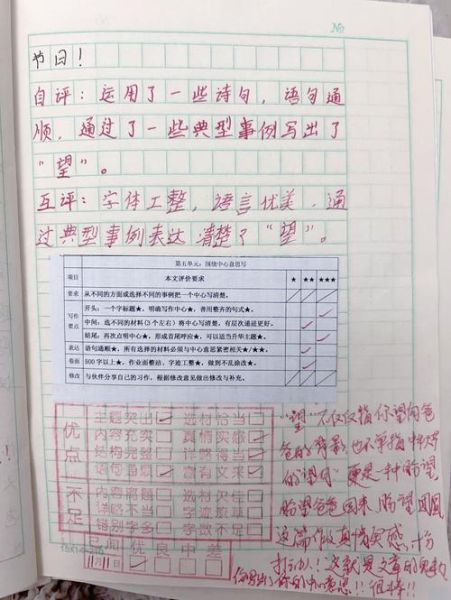 No
节日！
自评：运用了一些诗句，语句通
顺，通过了一些典型事例写出了
“望”。
互评：字体工整，语言优美，通
过典型事例表达清楚了“望”。
第五单元：围绕中心意思写
项目 本文评价要求 ★ ★★ ★★★
要求 从不同的方面或选择不同的事例把一个中心写清楚。
写作要点
开头：一个字标题★，明确写作中心★，善用整齐的句式★。
中间：选不同的材料（3个左右）将中心写清楚，有层次递进更好。
结尾：再次点明中心★，形成首尾呼应★，可以适当升华主题★。
表达 语句通顺★，所有选择的材料必须与中心意思紧密相关★/★★。
卷面 500字以上★，作业面整洁，字迹工整★，做到不乱涂改★。
修改 与伙伴分享自己的习作，根据修改意见做出修改与补充。
优点
主题突出 选材恰当
内容充实 真情实感
结构完整 详略得当
语句通顺 富有文采
不足
内容离题 选材欠佳
详略不当 字迹潦草
错别字多 字数不足
日期 优 良 中 差
11月11日
“望”不仅仅指你望向爸
爸的背影，也不单指中秋
的望月，更是一种盼望，
盼望爸爸回来，盼望团圆
这篇作文真情实感，十分
打动人！
你写出了你的中心意思！！很棒！！